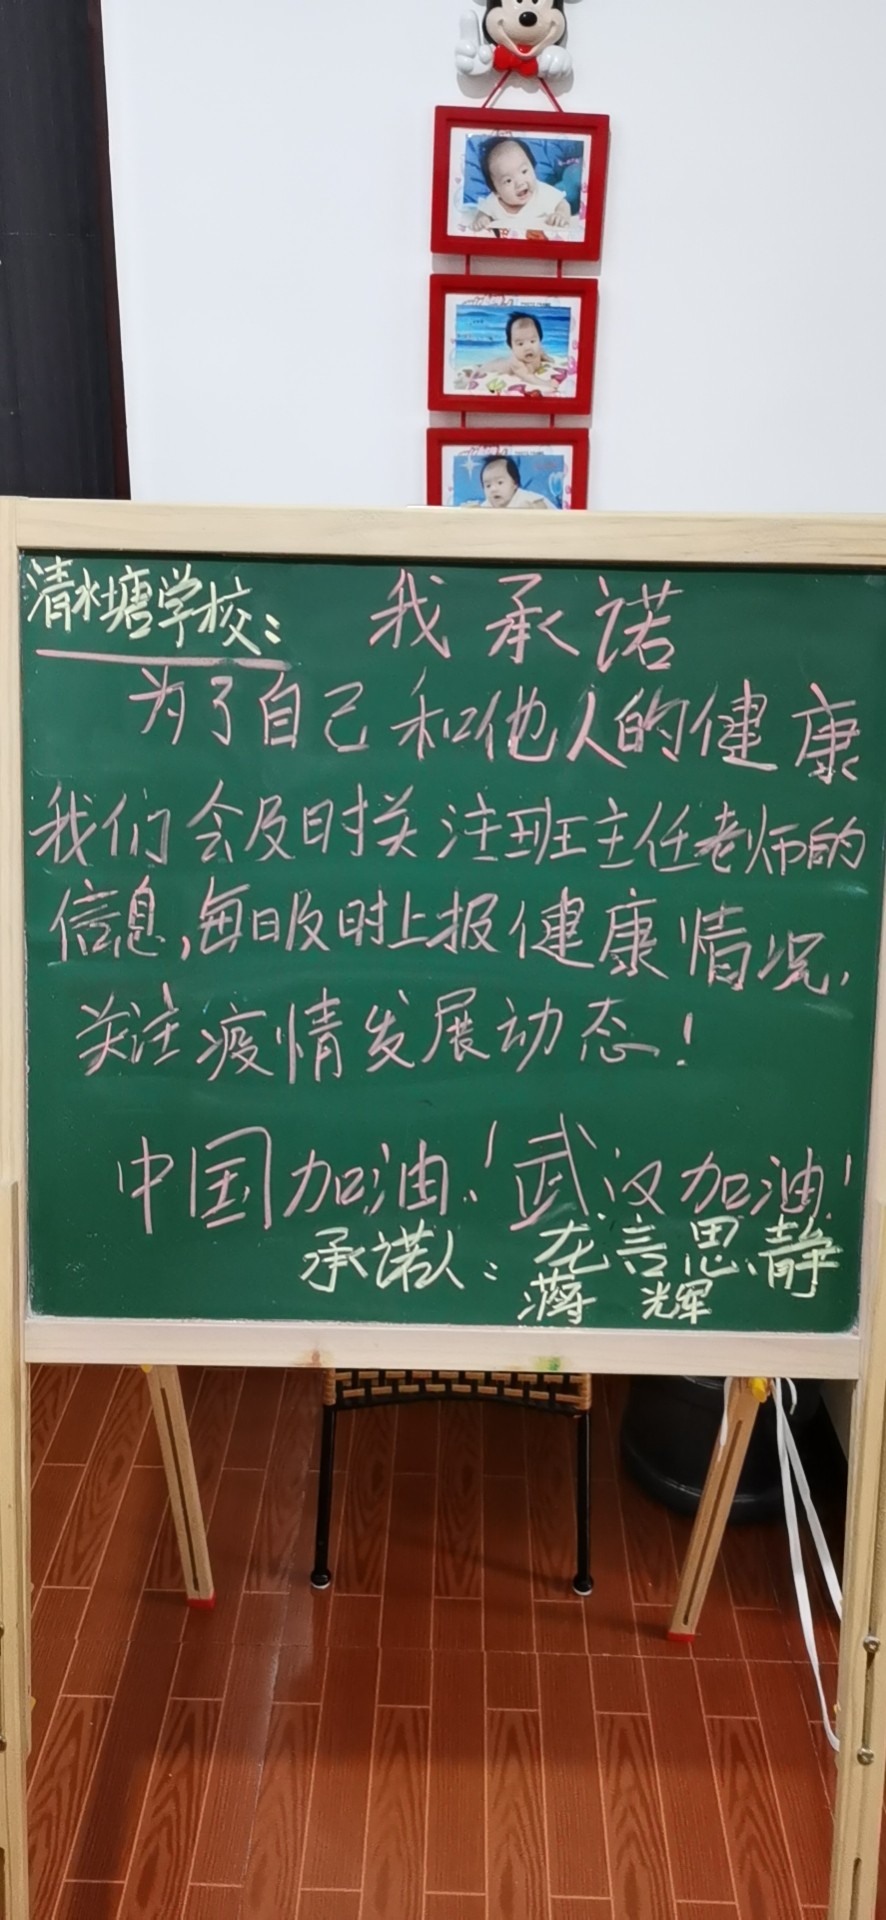 清水塘学校: 我承诺
为了自己和他人的健康
我们会及时关注班主任老师的
信息,每日及时上报健康情况,
关注疫情发展动态!
中国加油!武汉加油!
承诺人:龙言思静
蒋 辉